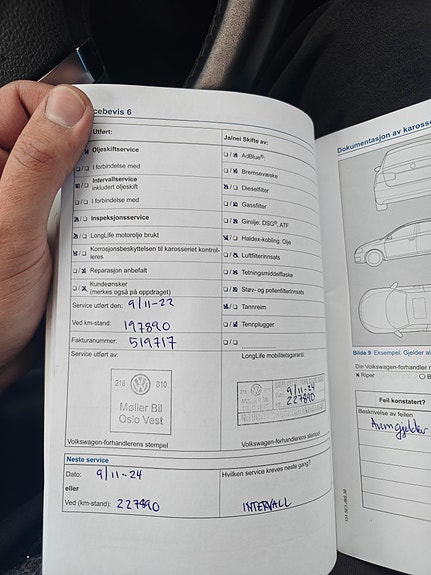 cebevis 6
Utført:
Oljeskiftservice
I forbindelse med
Intervallservice
inkludert oljeskift
I forbindelse med
Inspeksjonsservice
LongLife motorolje brukt
Korrosjonsbeskyttelsen til karosseriet kontrol-
leres
Reparasjon anbefalt
Kundeønsker
(merkes også på oppdraget)
Service utført den: 9/11-22
Ved km-stand: 197890
Fakturanummer: 519717
Service utført av:
218 010
Møller Bil
Oslo Vest
Volkswagen-forhandlerens stempel
Ja/nei Skifte av:
AdBlue®
Bremsevæske
Dieselfilter
Gassfilter
Girolje: DSG®, ATF
Haldex-kobling: Olje
Luftfilterinnsats
Tetningsmiddelflaske
Støv- og pollenfilterinnsats
Tannreim
Tennplugger
LongLife mobilitetsgaranti:
9/11-24
227890
Volkswagen-forhandlerens stempel
Neste service
Dato: 9/11-24
eller
Ved (km-stand): 227890
Hvilken service kreves neste gang?
INTERVALL
Dokumentasjon av karosse
Bilde 9 Eksempel: Gjelder al
Din Volkswagen-forhandler
Riper
Feil konstatert?
Beskrivelse av feilen